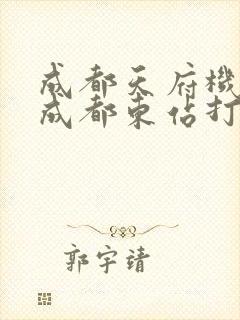 成都天府機
成都東佔打
郭宇靖